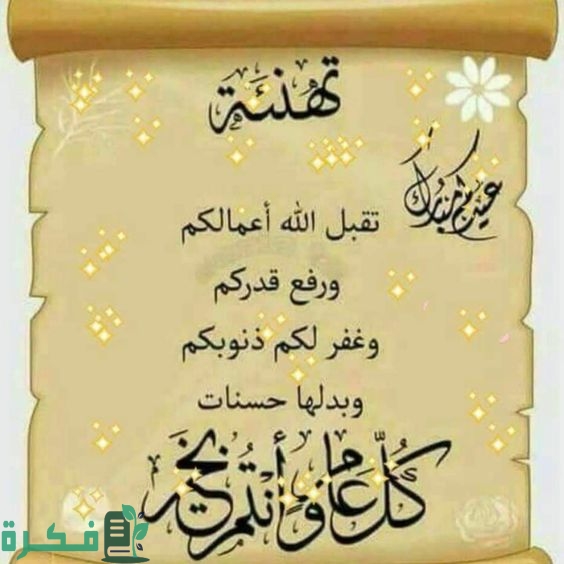 تهنئة
عيدكم مبارك
تقبل الله أعمالكم
ورفع قدركم
وغفر لكم ذنوبكم
وبدلها حسنات
كُلُّ عَامٍ وَأَنْتُمْ بِخَيْر
فكرة